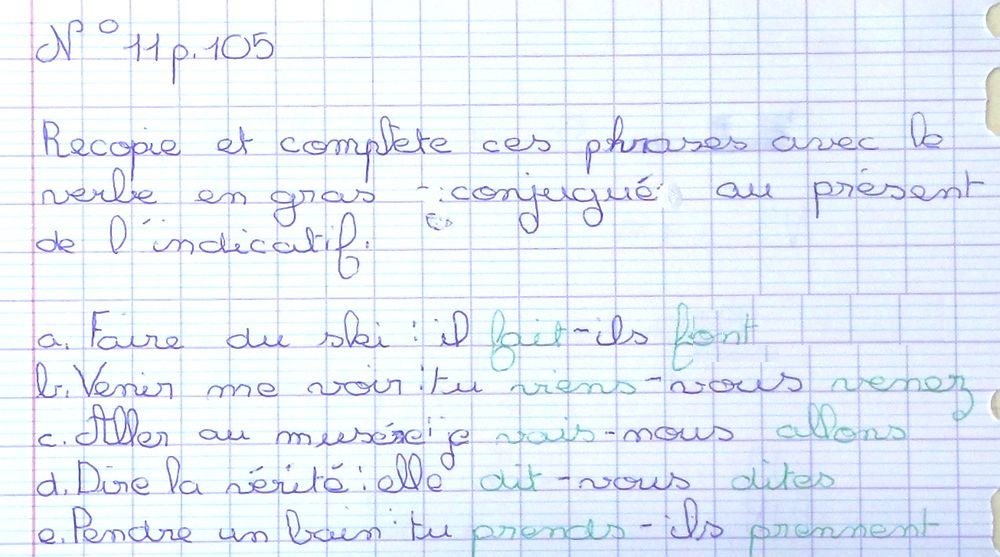 N° 11 p. 105
Recopie et complète ces phrases avec le
verbe en gras conjugué au présent
de l'indicatif.
a. Faire du ski : il fait - ils font
b. Venir me voir : tu viens - vous venez
c. Aller au musée : je vais - nous allons
d. Dire la vérité : elle dit - vous dites
e. Pendre un bain : tu prends - ils prennent